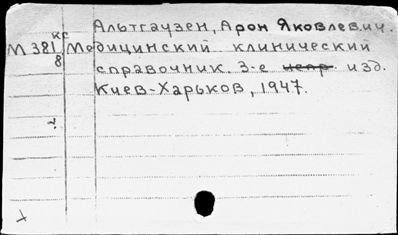 Альтгаузен, Арон Яковлевич.
кс
М 381 Медицинский клинический
8 справочник. 3-е испр. изд.
Киев-Харьков, 1947.